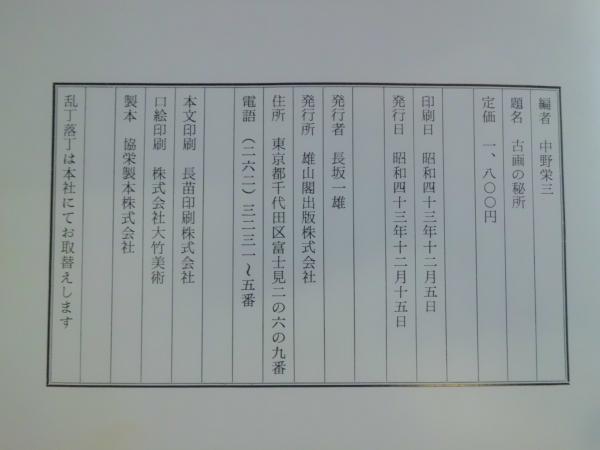 編者 中野栄三
題名 古画の秘所
定価 一、八〇〇円
印刷日 昭和四十三年十二月五日
発行日 昭和四十三年十二月十五日
発行者 長坂一雄
発行所 雄山閣出版株式会社
住所 東京都千代田区富士見二の六の九番
電話 (二六二) 三二三一〜五番
本文印刷 長苗印刷株式会社
口絵印刷 株式会社大竹美術
製本 協栄製本株式会社
乱丁落丁は本社にてお取替えします